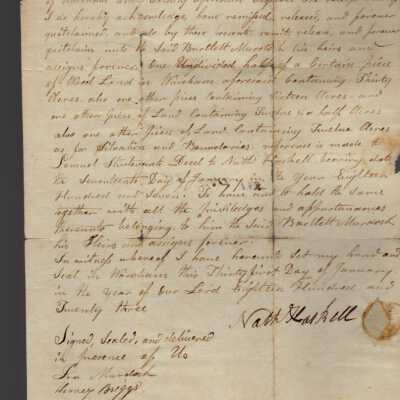 I do hereby acknowledge, have remised, released, and forever
quitclaimed, and do by these presents remise, release, and forever
quitclaim unto the Said Bartlett Murdock his heirs and
assigns forever. One Undivided half of a Certain piece
of Wood Land in Wareham aforesaid Containing Thirty
Acres. also one other piece containing Sixteen Acres. and
one other piece of Land Containing Twelve & a half Acres
also one other piece of Land Containing Twelve Acres
as for Situation and Boundaries, reference is made to
Samuel Sturtevants Deed to Nath Haskell bearing date
the Seventeenth Day of January in Year Eighteen
Hundred and Seven: To have and to hold the Same
together with all the priviledges and appurtenances
thereunto belonging to him the Said Bartlett Murdock
his Heirs and assigns forever:
In witness whereof I have hereunto Set my hand and
Seal in Wareham this Thirty first Day of January
in the Year of Our Lord Eighteen Hundred and
Twenty three
Nath Haskell
Signed, Sealed, and delivered
in presence of Us
Murdock
Briggs